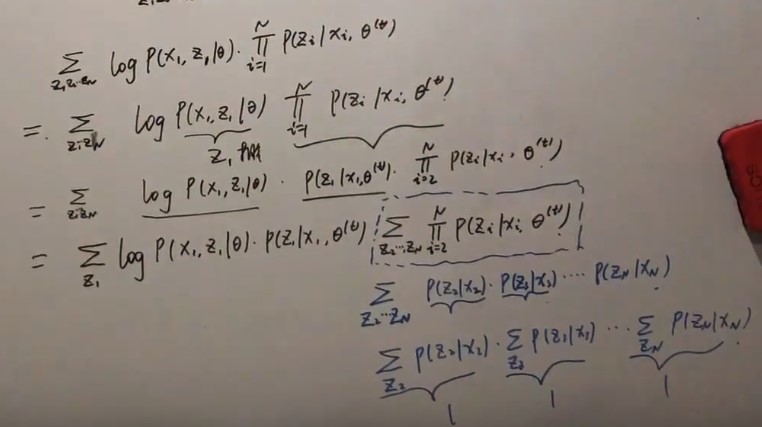 ∑_{z₁z₂…z_N} log P(x₁, z₁|θ) · ∏_{i=1}^{N} P(z_i|x_i, θ^{(t)})
= ∑_{z₁…z_N} log P(x₁, z₁|θ) ∏_{i=1}^{N} P(z_i|x_i, θ^{(t)})
z₁相关
= ∑_{z₁…z_N} log P(x₁, z₁|θ) · P(z₁|x₁, θ^{(t)}) · ∏_{i=2}^{N} P(z_i|x_i, θ^{(t)})
= ∑_{z₁} log P(x₁, z₁|θ) · P(z₁|x₁, θ^{(t)}) ∑_{z₂…z_N} ∏_{i=2}^{N} P(z_i|x_i, θ^{(t)})
∑_{z₂…z_N} P(z₂|x₂) · P(z₃|x₃) ···· P(z_N|x_N)
∑_{z₂} P(z₂|x₂) · ∑_{z₃} P(z₃|x₃) ··· ∑_{z_N} P(z_N|x_N)
1 1 1